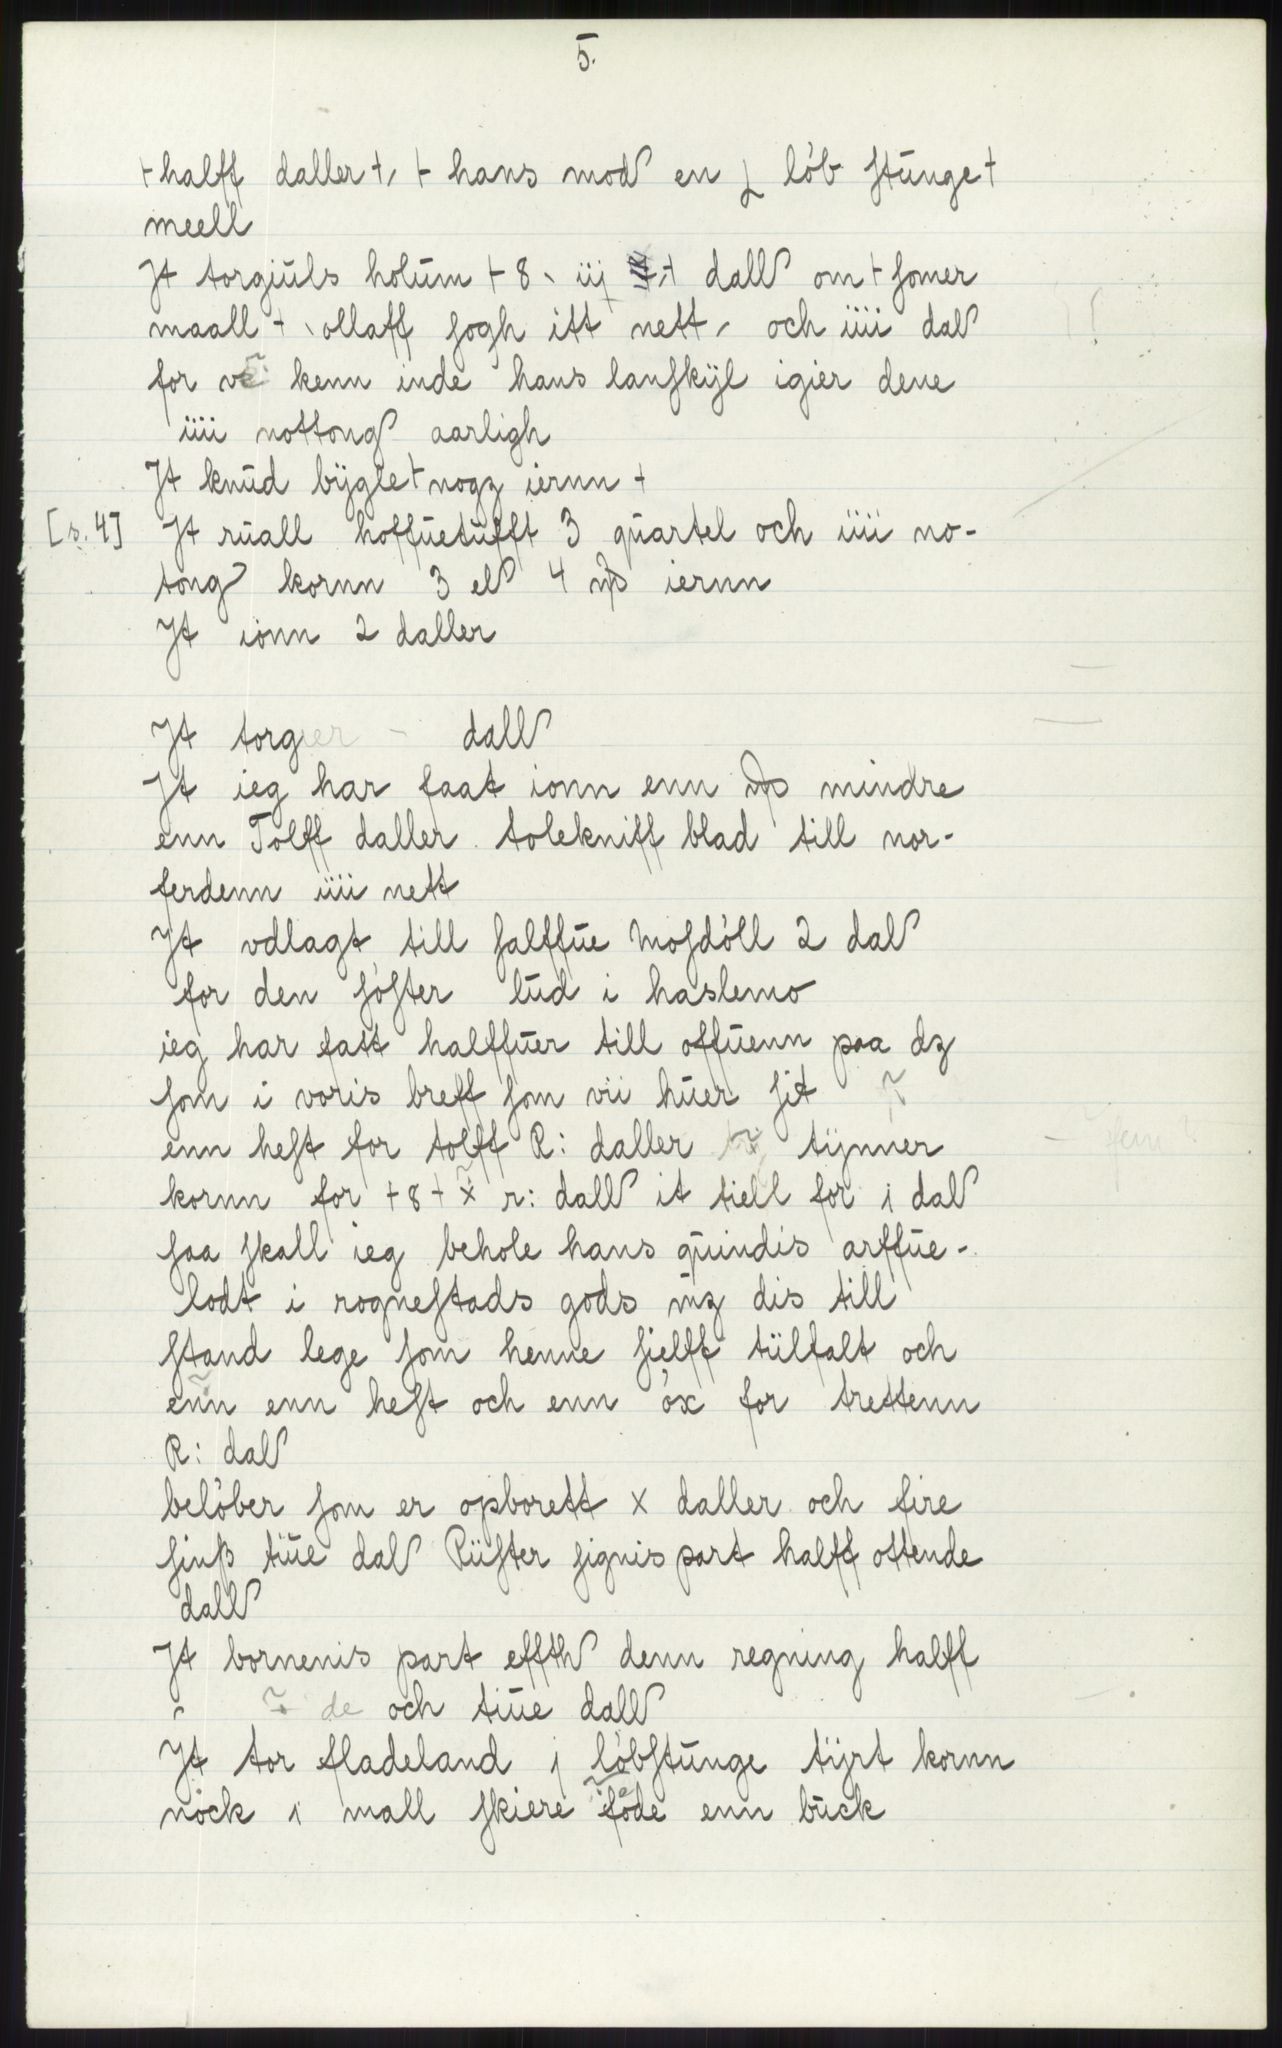 5.
+ halff daller +, + hans mod en ½ löb stunge +
meell
Jt torgiuls holum + 8 üj + dall om + somer
maall + ollaff sogh itt nett, och iiii dal
for kenn inde hans lanskÿl igier dene
iiii nottong aarligh
Jt knud bÿgle + nogz iernn +
[s. 4] Jt ruall hoffuetufft 3 quartel och iiii no-
tong kornn 3 el 4 iernn
Jt ionn 2 daller
Jt torgier - dall
Jt ieg har faat ionn enn mindre
enn Tolff daller tolekniff blad till nor-
ferdenn iiii nett
Jt vdlagt till salffue Mosdöll 2 dal
for den söster lud i haslemo
ieg har fatt halffuer till offuenn paa dz
som i voris breff som vii huer sit
enn hest for tolff R: daller tÿnner
kornn for + 8 + x r: dall it tiell for i dal
saa skall ieg behole hans quindis arffue-
lodt i rognestads gods mz dis till
stand lege som henne sielff tilfalt och
enn enn hest och enn öx for trettenn
R: dal
belöber som er opborett x daller och fire
sinß tiue dal Rüster signis part halff ottende
dall
Jt bornenis part effth denn regning halff
de och tiue dall
Jt tor fladeland j löbstunge tÿrt kornn
nock i mall skiere föde enn buck